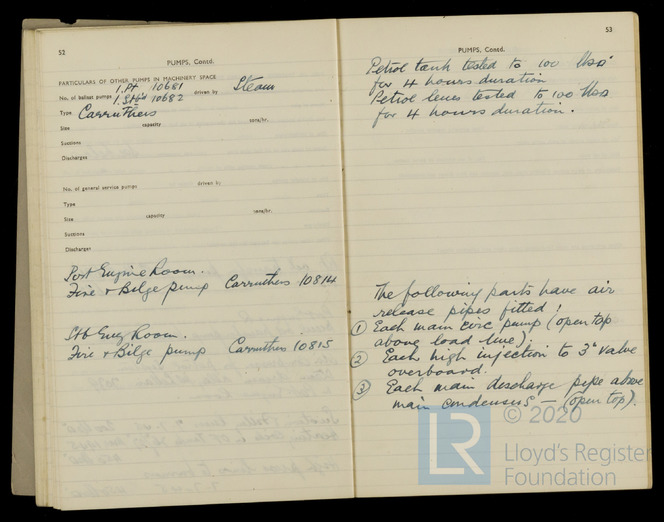 52
PUMPS, Contd.
PARTICULARS OF OTHER PUMPS IN MACHINERY SPACE
1. Pt 10681
No. of ballast pumps 1. Stb'd 10682 driven by Steam
Type Carruthers
Size capacity tons/hr.
Suctions
Discharges
No. of general service pumps driven by
Type
Size capacity tons/hr.
Suctions
Discharges
Port Engine Room.
Fire & Bilge pump Carruthers 10814
Stb Eng Room.
Fire & Bilge pump Carruthers 10815
53
PUMPS, Contd.
Petrol tank tested to 100 lbs□"
for 4 hours duration
Petrol lines tested to 100 lbs□
for 4 hours duration.
The following parts have air
release pipes fitted!
① Each main circ pump (open top
above load line).
② Each high injection to 3" valve
overboard.
③ Each main discharge pipe above
main condensers — (open top).
LR © 2020
Lloyd's Register
Foundation